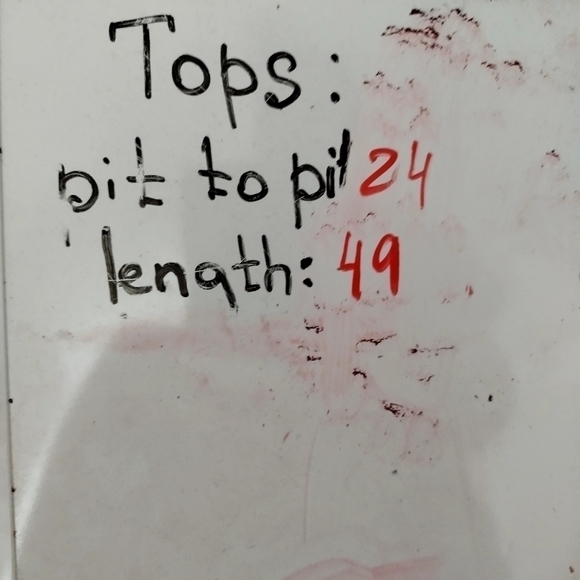 Tops:
pit to pit 24
length: 49